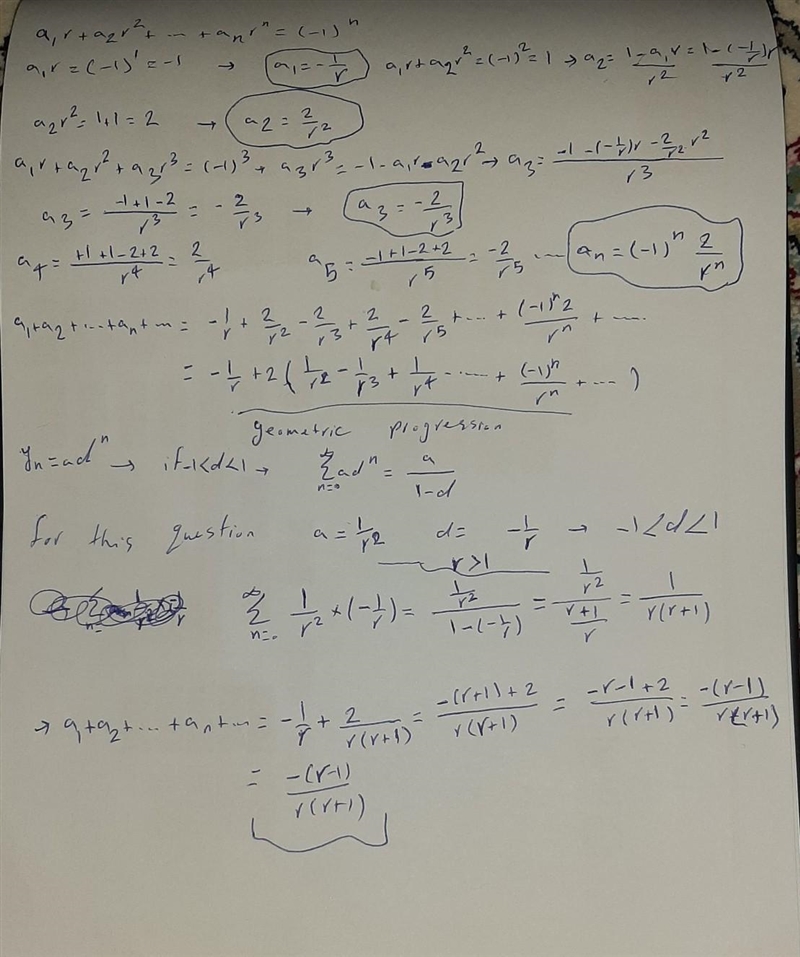 a₁r + a₂r² + ... + aₙrⁿ = (-1)ⁿ
a₁r = (-1)¹ = -1 → a₁ = -1/r   a₁r + a₂r² = (-1)² = 1 → a₂ = (1 - a₁r)/r² = (1 - (-1/r)r)/r²
a₂r² = 1+1 = 2 → a₂ = 2/r²
a₁r + a₂r² + a₃r³ = (-1)³ → a₃r³ = -1 - a₁r - a₂r² → a₃ = (-1 - (-1/r)r - 2/r² r²)/r³
a₃ = (-1+1-2)/r³ = -2/r³ → a₃ = -2/r³
a₄ = (+1+1-2+2)/r⁴ = 2/r⁴   a₅ = (-1+1-2+2)/r⁵ = -2/r⁵ ... aₙ = (-1)ⁿ 2/rⁿ
a₁+a₂+...+aₙ+... = -1/r + 2/r² - 2/r³ + 2/r⁴ - 2/r⁵ + ... + (-1)ⁿ2/rⁿ + ....
= -1/r + 2(1/r² - 1/r³ + 1/r⁴ - .... + (-1)ⁿ/rⁿ + ...)
geometric progression
yₙ = adⁿ → if -1<d<1 → ∞Σn=0 adⁿ = a/(1-d)
for this question a = 1/r² d = -1/r → -1<d<1
r>1
∞Σn=0 1/r² × (-1/r) = (1/r²)/(1-(-1/r)) = (1/r²)/((r+1)/r) = 1/(r(r+1))
→ a₁+a₂+...+aₙ+... = -1/r + 2/(r(r+1)) = (-(r+1)+2)/(r(r+1)) = (-r-1+2)/(r(r+1)) = -(r-1)/(r(r+1))
= -(r-1)/(r(r+1))